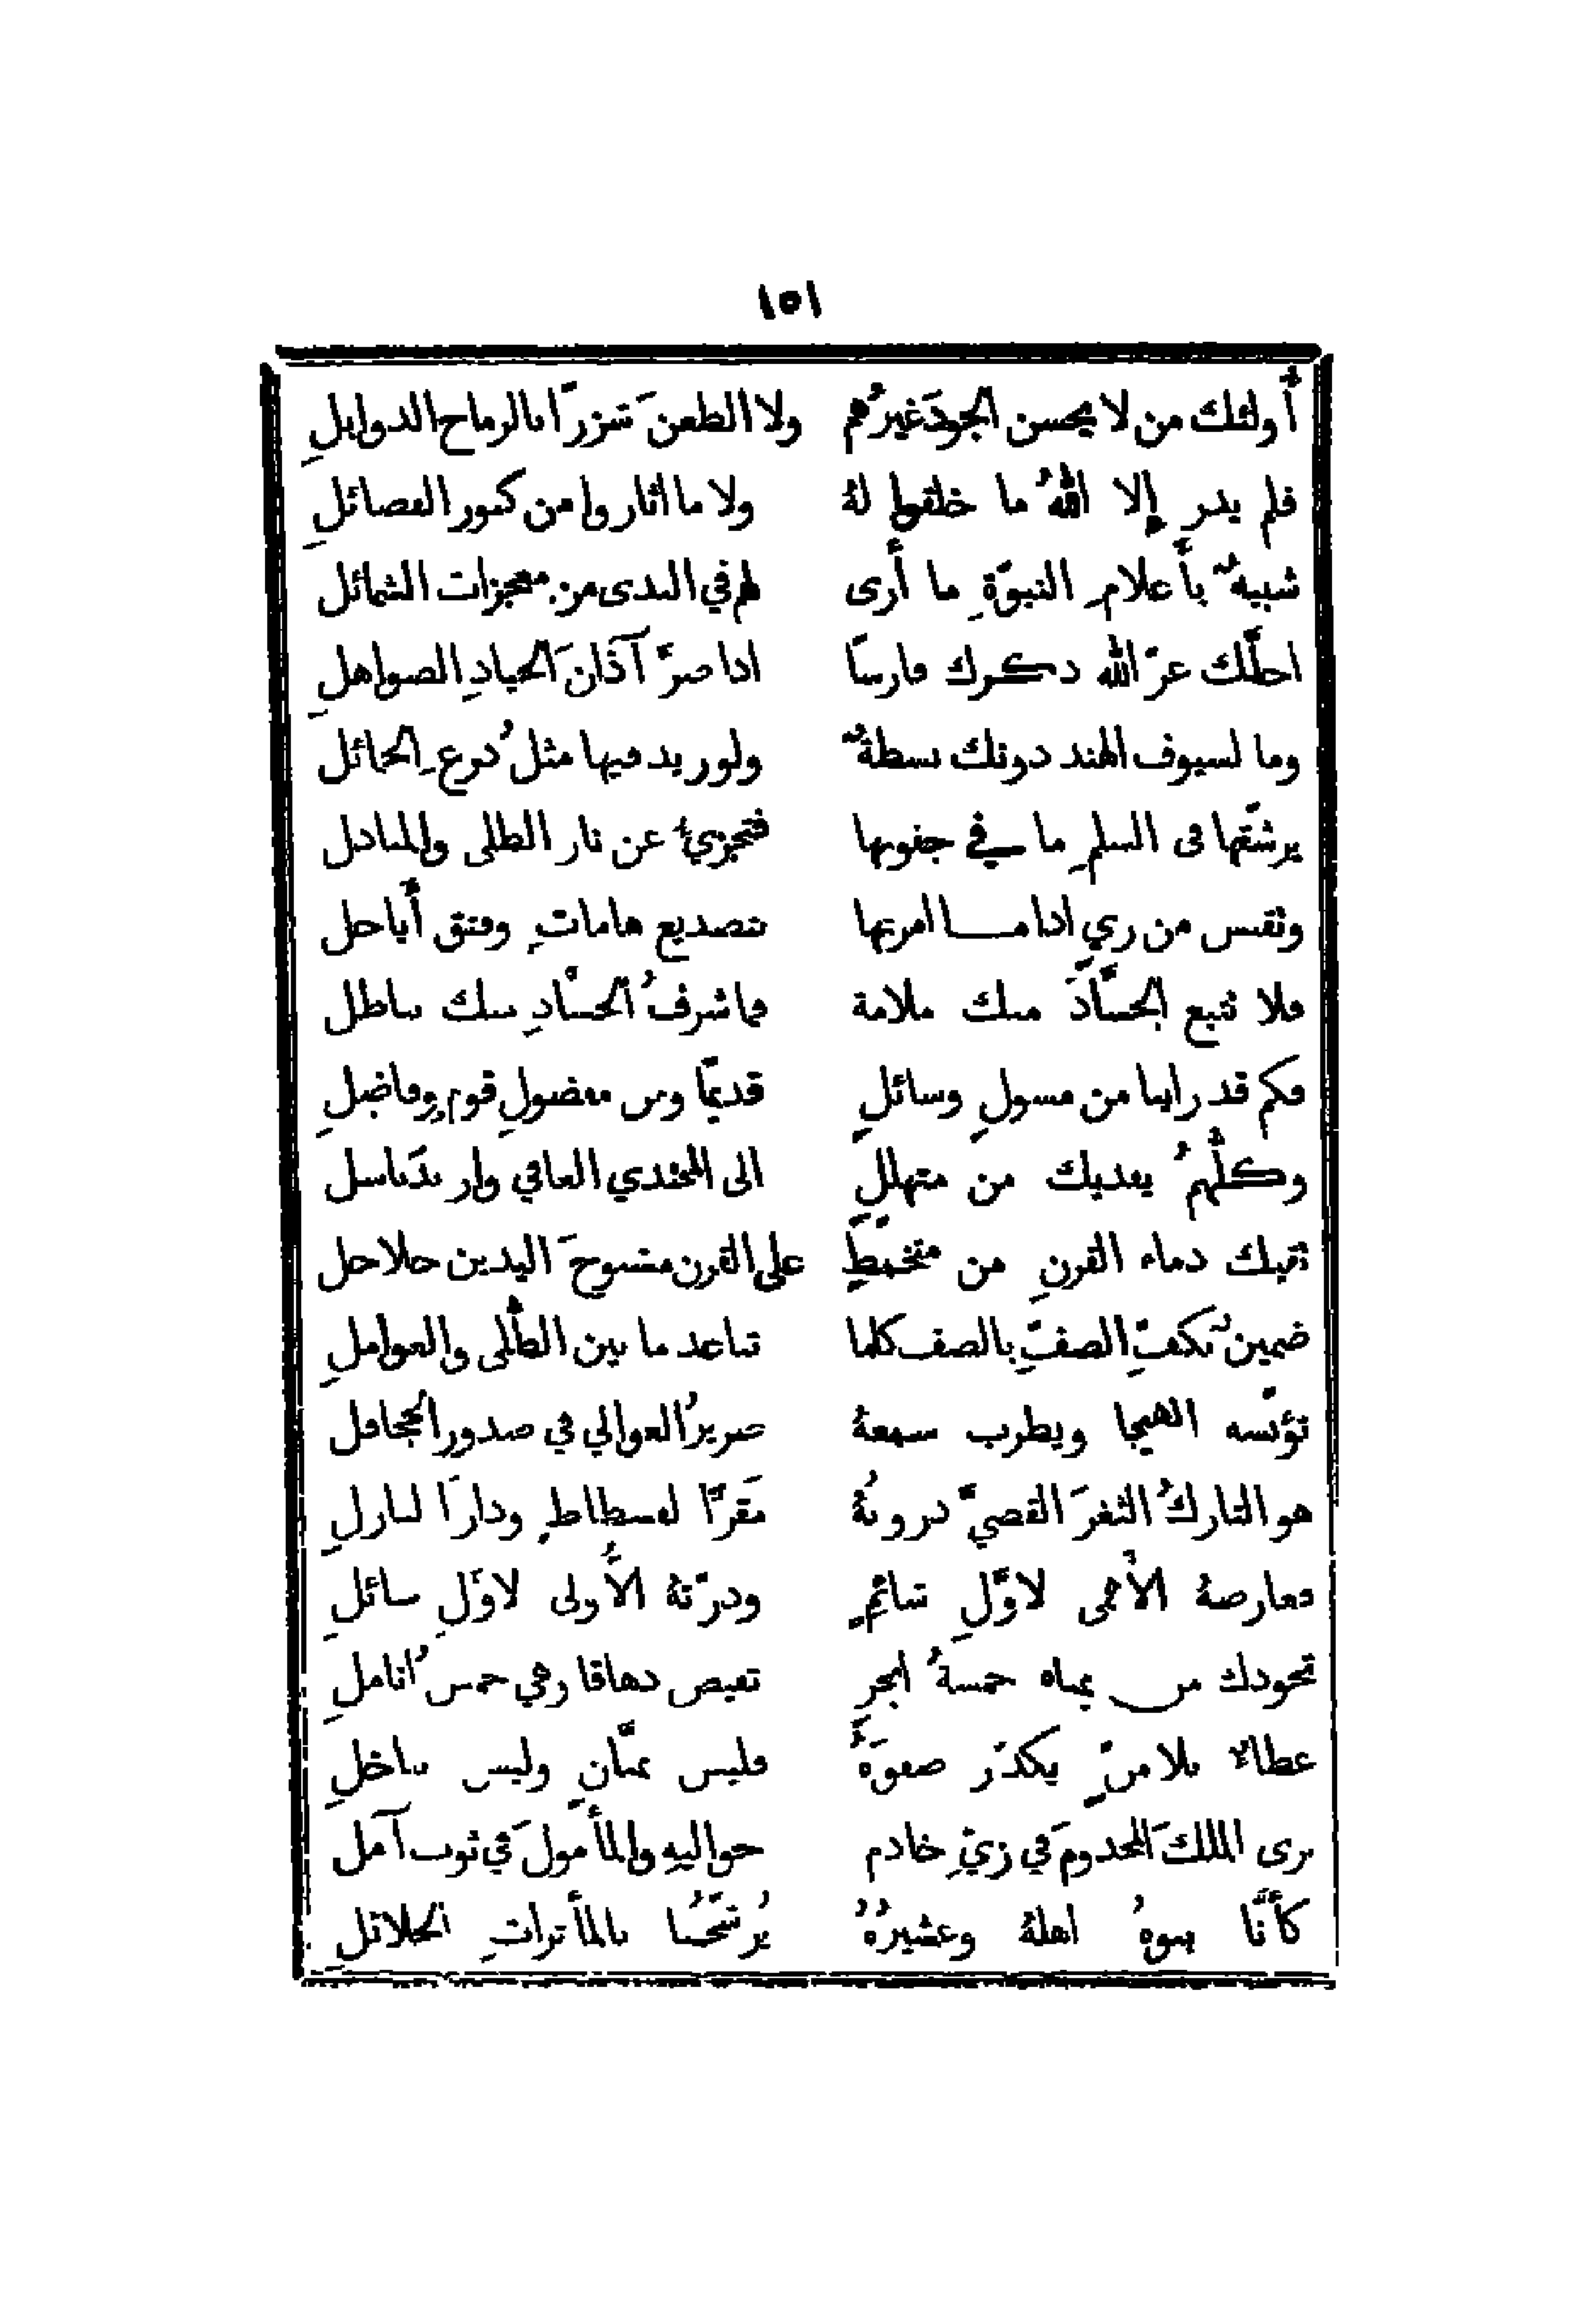 ١٥١
أولئك من لا يحسن الجودَ غيرُهم ولا الطعنَ شزرًا بالرماح الذوابلِ
فلم يدر إلا اللهُ ما خلقوا لهُ ولا ما اثاروا من كنوز الفصائلِ
شبيهٌ بأعلامِ النبوّةِ ما أرى لهم في الندى من معجزات الشمائل
اجلّك عزّ الله ذكرك فارسًا اذا صرَّ آذانَ الجيادِ الصواهلِ
وما لسيوف الهند دونك بسطةٌ ولو زيد فيها مثلُ درعِ الحمائل
يرشّفها في السلمِ ما في جفونها فتجزيءُ عن نار الطلى والمبادل
وتقسم من ري اذا ما امرتها بتصديع هاماتٍ وفتق أباجل
فلا تتبع الحسّادَ منك ملامة فما شرفُ الحسّادِ منك بباطل
فكم قد راينا من مسولٍ وسائلٍ قديمًا ومن مفضولِ قومٍ وفاضلِ
وكلّهمُ يفديك من متهللٍ الى المجتدي العافي واربدَ باسل
تقيك دماء القرنِ من متخمطٍ على القرن مشبوحَ اليدين حلاحل
ضمينٌ بكفّ الصفّ بالصف كلما تباعد ما بين الطُلى والعواملِ
تؤنّسه الهيجا ويطرب سمعهُ صريرُ العوالي في صدور الجحافل
هو التاركُ الثغرَ القصيَّ دروبهُ مَقرًّا لفسطاطٍ ودارًا لنازلِ
فعارضهُ الأَهمى لاوّلِ شائمٍ ودرّتهُ الأُولى لاوّلِ سائلِ
تجودك من يمناه خمسةُ ابحرٍ تفيض دهاقا وهي خمسُ اناملِ
عطاءٌ بلا منٍّ يكدّر صفوَهُ فليس بمنّانٍ وليس بباخلِ
يرى الملكَ المخدومَ في زيِّ خادم حواليهِ والمأمولَ في ثوب آمل
كأنّا بنوهُ اهلهُ وعشيرُهُ يُرشّحنا بالمأثراتِ الجلائلِ